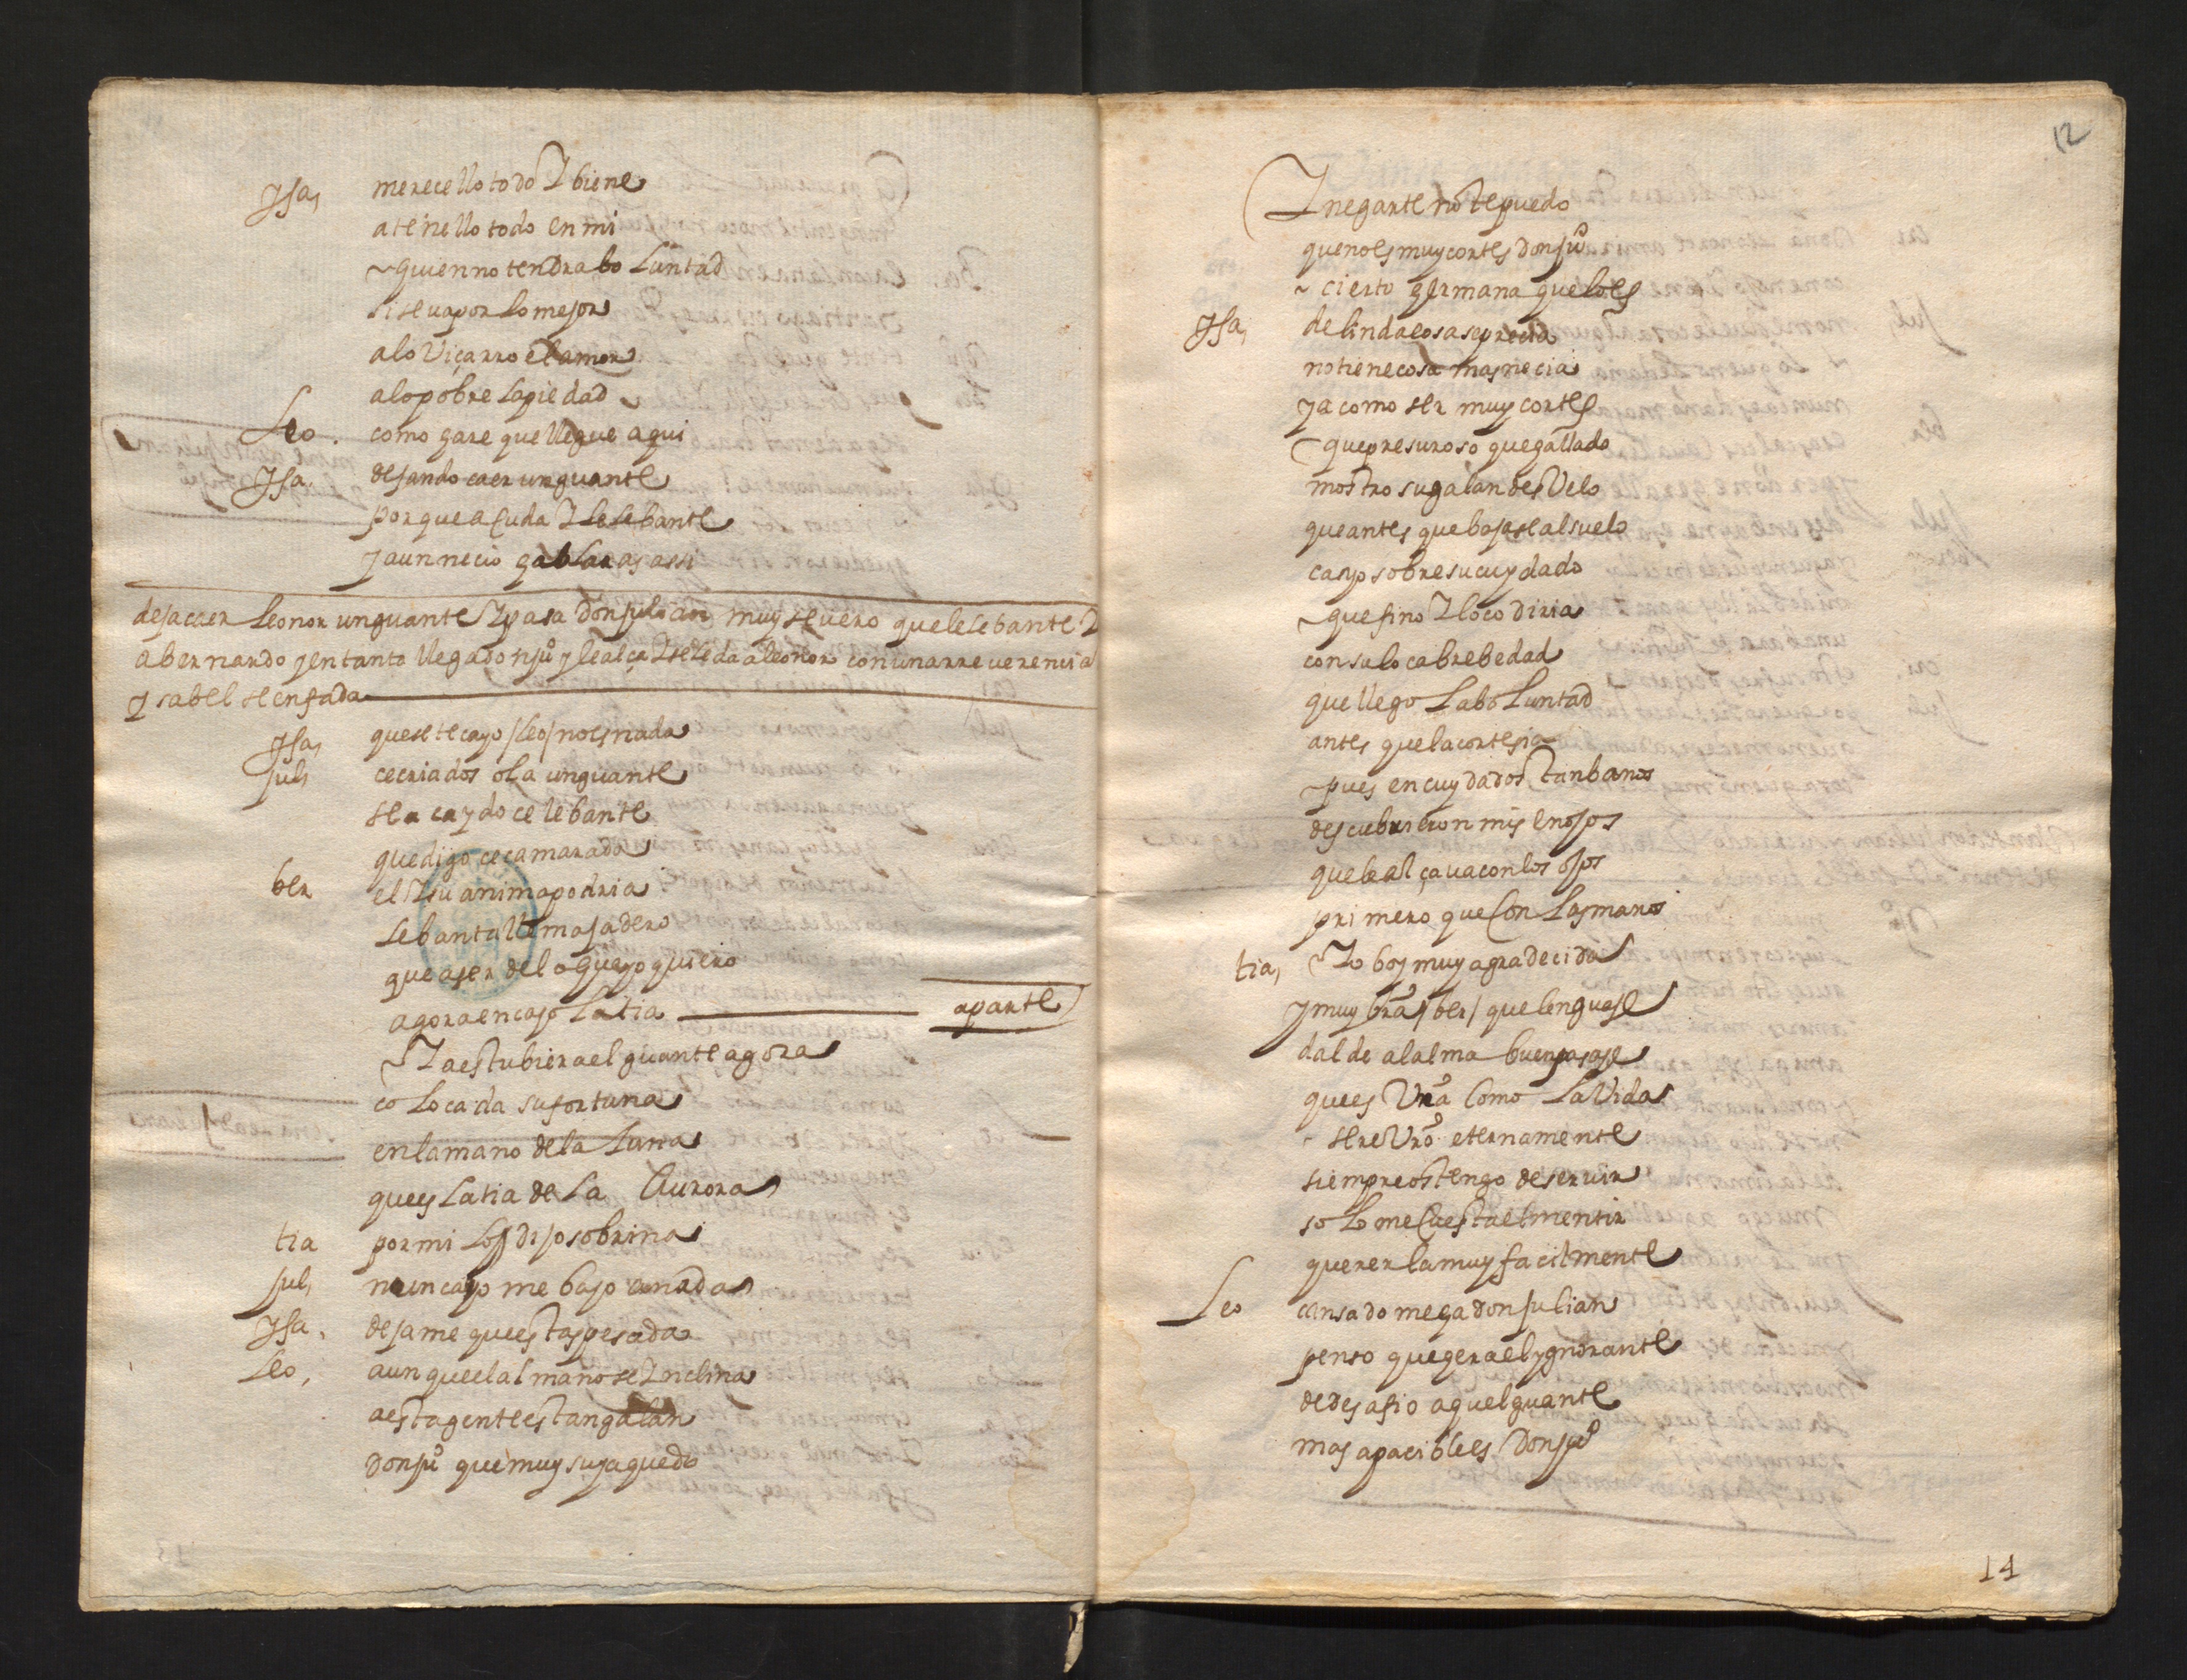 Isa, merecello todo I biene
atenello todo en mi
~ quien no tendra bo luntad
si se va por lo mejor
a lo viçarro el amor
a lo pobre la piedad
Leo. como hare que llegue aqui
Isa. dejando caer un guante
porque acuda I le lebante
y a un necio hablaras assi
deja caer Leonor un guante I pasa don julian muy seuero que le lebante I
a bernardo y en tanto llega don juº y le alça I se le da a leonor con una rreuerencia
ysabel se enfada
Isa, que se te cayo /Leo/ no es nada
jul, ce criados ola un guante
se a caydo ce lebante
que digo ce camarada
ber el I su anima podria
lebantalle majadero
que a ser de lo que yo quiero
agora encajo la tia aparte
~ I a estubiera el guante agora
co locada su fortuna
en la mano de la luna
que es la tia de la Aurora
tia por mi los dijo sobrina
jul, nunca yo me bajo a nada
Isa. dejame que estas pesada
Leo, aunque el alma no se Inclina
a esta gente es tan galan
don juº que muy suya quedo
12
I negarte no te puedo
que no es muy cortes don juº
~ cierto hermana que lo es
Isa, de linda cosa se precia
no tiene cosa mas necia
ya como ser muy cortes
~ que presuroso que hallado
mostro su galan desvelo
que antes que bajase al suelo
cayo sobre su cuydado
~ que fino I loco diria
con su loca brebedad
que llego la bo luntad
antes que la cortesia
~ pues en cuydados tan banos
descubrieron mis enojos
que le alçava con los ojos
primero que con las manos
tia, ~ Io boy muy agradecida
y muy vrã /ber/ que lenguaje
dalde al alma buen pasaje
que es Vrã como la Vida
~ sere Vrº eternamente
siempre os tengo de seruir
so lo me cuesta el mentir
querer la muy facilmente
Leo cansado me ha don julian
penso que hera el ygnorante
de desafio aquel guante
mas apacible es don juº
14